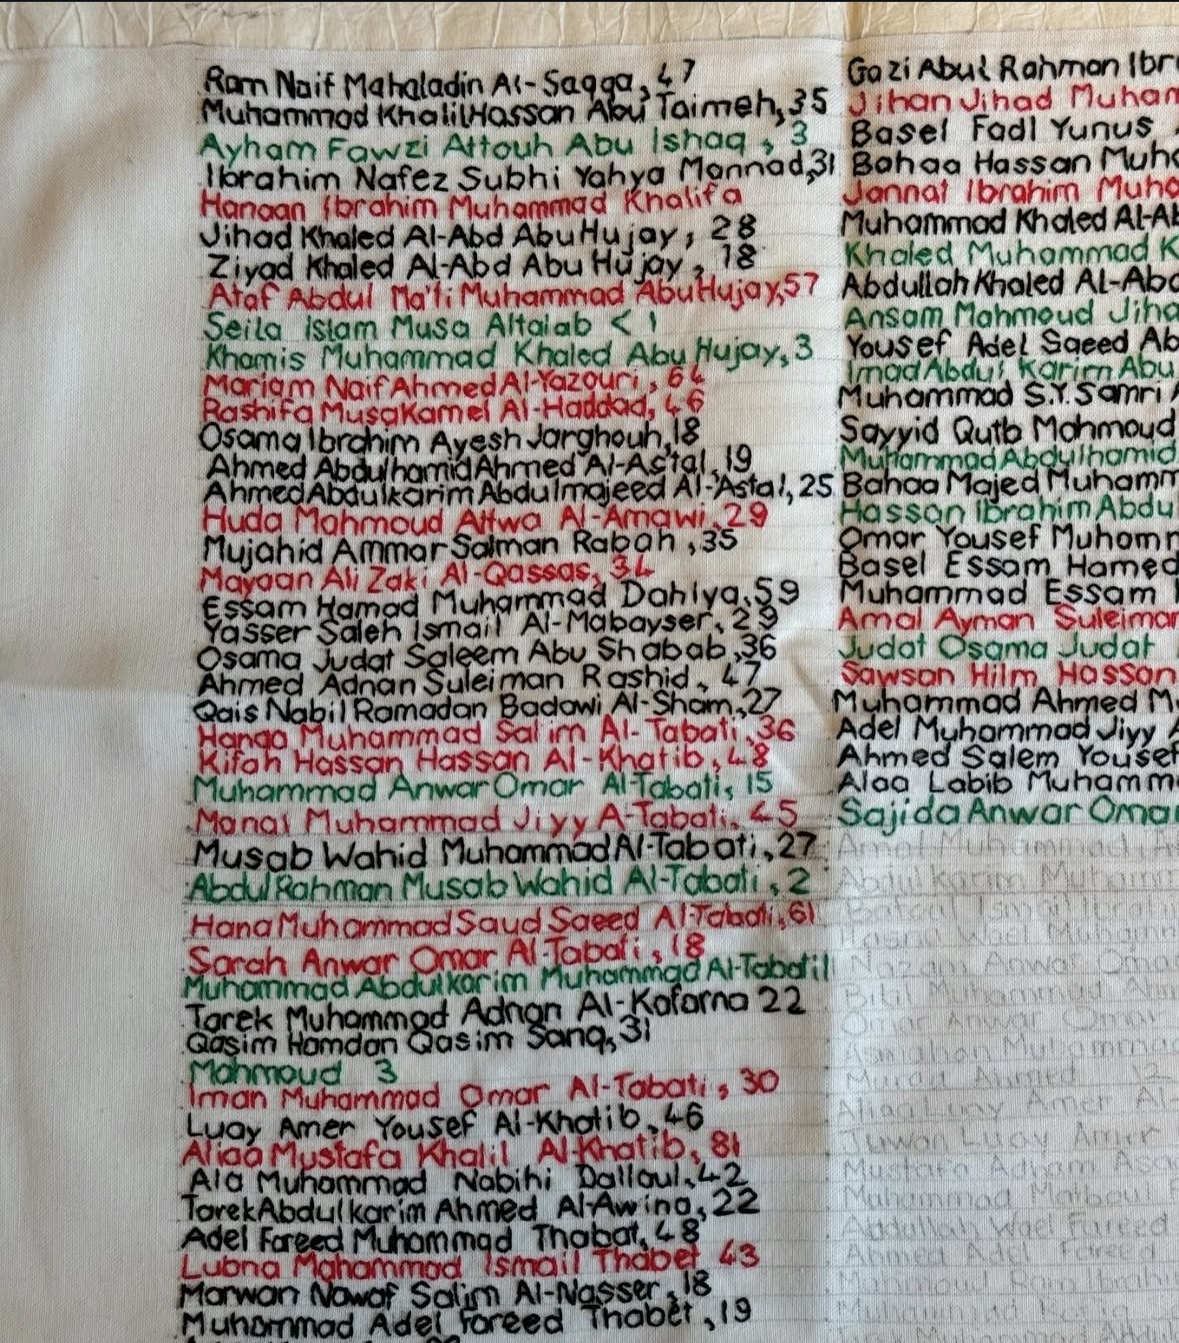 Ram Naif Mahaladin Al-Saqqa, 47
Muhammad Khalil Hassan Abu Taimeh, 35
Ayham Fawzi Attouh Abu Ishaq, 3
Ibrahim Nafez Subhi Yahya Mannad, 31
Hanaan Ibrahim Muhammad Khalifa
Jihad Khaled Al-Abd Abu Hujay, 28
Ziyad Khaled Al-Abd Abu Hujay, 18
Ataf Abdul Ma'ti Muhammad Abu Hujay, 57
Seila Islam Musa Altalab < 1
Khamis Muhammad Khaled Abu Hujay, 3
Mariam Naif Ahmed Al-Yazouri, 64
Rashifa Musa Kamel Al-Haddad, 46
Osama Ibrahim Ayesh Jarghouh, 18
Ahmed Abdulhamid Ahmed Al-Astal, 19
Ahmed Abdulkarim Abdulmajeed Al-Astal, 25
Huda Mahmoud Attwa Al-Amawi, 29
Mujahid Ammar Salman Rabah, 35
Mayaan Ali Zaki Al-Qassas, 34
Essam Hamad Muhammad Dahlya, 59
Yasser Saleh Ismail Al-Mabayser, 29
Osama Judat Saleem Abu Shabab, 36
Ahmed Adnan Suleiman Rashid, 47
Qais Nabil Ramadan Badawi Al-Sham, 27
Hanga Muhammad Salim Al-Tabati, 36
Kifah Hassan Hassan Al-Khatib, 48
Muhammad Anwar Omar Al-Tabati, 15
Manal Muhammad Jiyy A-Tabati, 45
Musab Wahid Muhammad Al-Tabati, 27
Abdul Rahman Musab Wahid Al-Tabati, 2
Hana Muhammad Sayd Saeed Al-Tabati, 61
Sarah Anwar Omar Al-Tabati, 18
Muhammad Abdulkarim Muhammad Al-Tabati
Tarek Muhammad Adnan Al-Kafarna 22
Qasim Hamdan Qasim Sanq, 31
Mahmoud 3
Iman Muhammad Omar Al-Tabati, 30
Luay Amer Yousef Al-Khatib, 46
Aliaa Mustafa Khalil Al-Khatib, 81
Ala Muhammad Nabihi Dalloul, 42
Tarek Abdulkarim Ahmed Al-Awina, 22
Adel Fareed Muhammad Thabat, 48
Lubna Mahammad Ismail Thabet 43
Marwan Nawaf Salim Al-Nasser, 18
Muhammad Adel Fareed Thabet, 19
Gazi Abul Rahman Ibr
Jihan Jihad Muham
Basel Fadl Yunus
Bahaa Hassan Muh
Jannat Ibrahim Muha
Muhammad Khaled Al-Ab
Khaled Muhammad K
Abdullah Khaled Al-Abd
Ansam Mahmoud Jiha
Yousef Adel Saeed Ab
Imad Abdul Karim Abu
Muhammad S.Y. Samri
Sayyid Qutb Mahmoud
Muhammad Abdulhamid
Bahaa Majed Muhamm
Hassan Ibrahim Abdu
Omar Yousef Muhamm
Basel Essam Hamed
Muhammad Essam
Amal Ayman Suleiman
Judat Osama Judat
Sawsan Hilm Hassan
Muhammad Ahmed M
Adel Muhammad Jiyy
Ahmed Salem Yousef
Alaa Labib Muhamm
Sajida Anwar Omar
Amal Muhammad
Abdulkarim Muhamm
Ismail Ibrahi
Wael Muhamm
Anwar Omar
Muhammad Ahm
Omar Anwar Omar
Asmahan Muhammad
Murad Ahmed 12
Aliaa Luay Amer Al-
Juwan Luay Amer
Mustafa Adham Asa
Muhammad
Abdullah Wael Fareed
Ahmed Adel Fareed
Mahmoud Rami Ibrahi
Muhammad